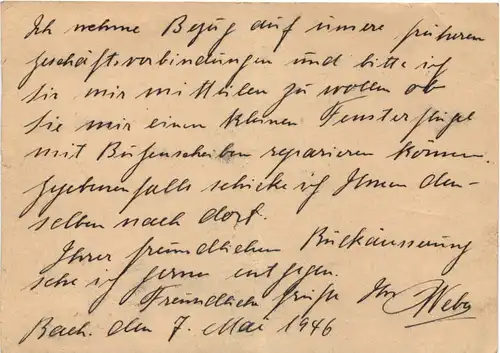 Ich nehme Bezug auf unsere früheren
Geschäftsverbindungen und bitte ich
Sie mir mitteilen zu wollen ob
Sie mir einen kleinen Fensterflügel
mit Butzenscheiben reparieren können.
Gegebenenfalls schicke ich Ihnen den-
selben nach dort.
Ihrer freundlichen Rückäusserung
sehe ich gerne entgegen.
Freundliche Grüße Ihr Weber
den 7. Mai 1946